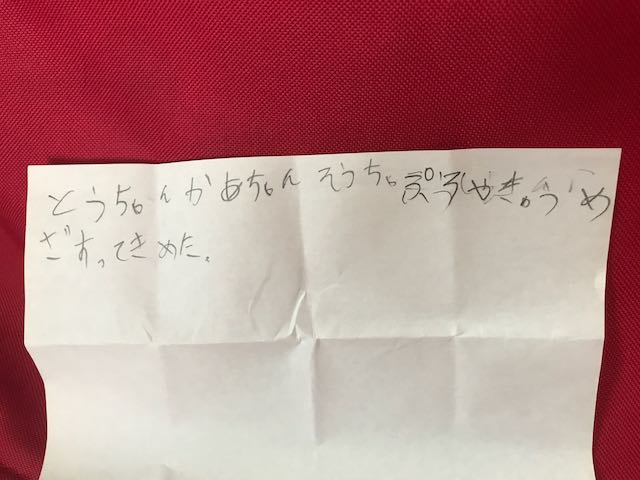 とうちゃんかあちゃん そうちゃぷろやきゅうめ
ざすってきめた。